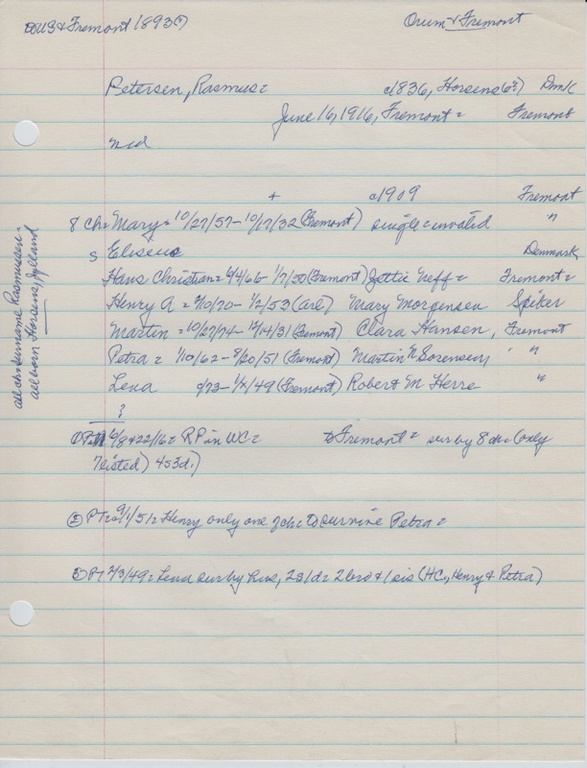 to US & Fremont 1893(?)
Orum & Fremont
Petersen, Rasmus = c1836, Horsens(6?) Dmk
June 16, 1916, Fremont = Fremont
md
+ c1909 Fremont
8 Ch = Mary = 10/27/57 - 10/17/32 (Fremont) single = invalid "
s Eliseus Denmark
Hans Christian = 4/4/66 - 1/7/50 (Fremont) Jettie Neff = Fremont =
Henry A = 9/10/70 - 1/2/53 (Arl) Mary Morgensen Spiker
Martin = 10/27/74 - 12/14/31 (Fremont) Clara Hansen, Fremont
Petra = 1/10/62 - 8/20/51 (Fremont) Martin N Sorensen, " "
Lena 9/73 - 1/2/49 (Fremont) Robert M Herre "
?
① 6/8 & 22/16 = RP in WC = to Fremont = sur by 8 ch (only
7 listed) 4 s 3 d.)
② PT = 9/1/51 = Henry only one of ch to survive Petra =
③ PT 2/3/49 = Lena sur by hus, 2 s 1 d = 2 bro & 1 sis (HC, Henry & Petra)
all ch surname Rasmussen -
all born Horsens, Jylland